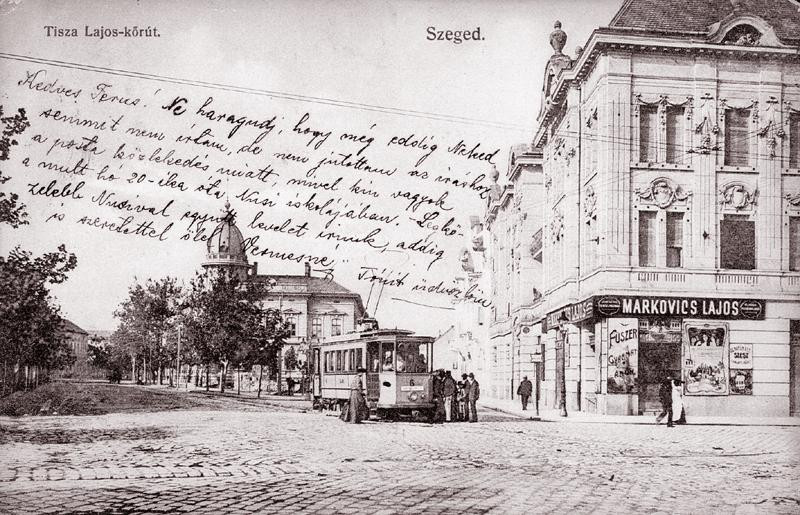 Tisza Lajos-kőrút.
Szeged.
Kedves Terus! Ne haragudj, hogy még eddig Neked
semmit nem írtam, de nem jutottam az íráshoz
a posta közlekedés miatt, mivel kin vagyok
a mult hó 20-ika óta, Nusi iskolájában. Legkö-
zelebb Nusival együtt levelet irunk, addig
is szeretettel ölel Vermesné
Tónit üdvözlöm
MARKOVICS LAJOS
LAJOS
FŰSZER
GYARMAT